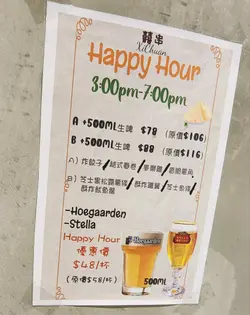 蘋串
XiChuan
Happy Hour
3:00pm-7:00pm
A +500ML生啤 $78 (原價$106)
B +500ML生啤 $88 (原價$116)
A) 炸餃子/越式春卷/麥樂雞/
B) 芝士黑松露薯條/酥炸
酥炸魷魚鬚
-Hoegaarden
-Stella
Happy Hour
優惠價
$48/杯
(原價$58/杯)
Hoegaarden
500ML